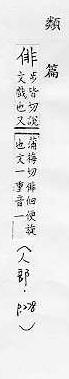 類篇
俳
步皆切說
文戲也又
蒲梅切俳佪便旋
也文一重音一
(人部.p.278)